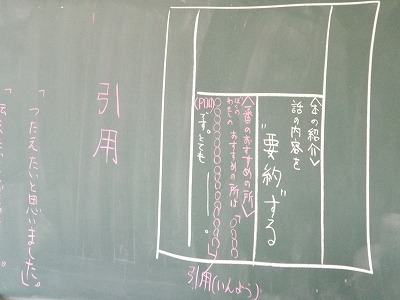 <本の紹介>
話の内容を
"要約"する
<一番のおすすめの所>
ぼくの
わたしの おすすめの所は「〇〇〇
〇〇〇〇〇〇〇〇〇〇〇〇」
(P〇〇)です。とても
引用(いんよう)
引用
「つたえたいと思いました。」